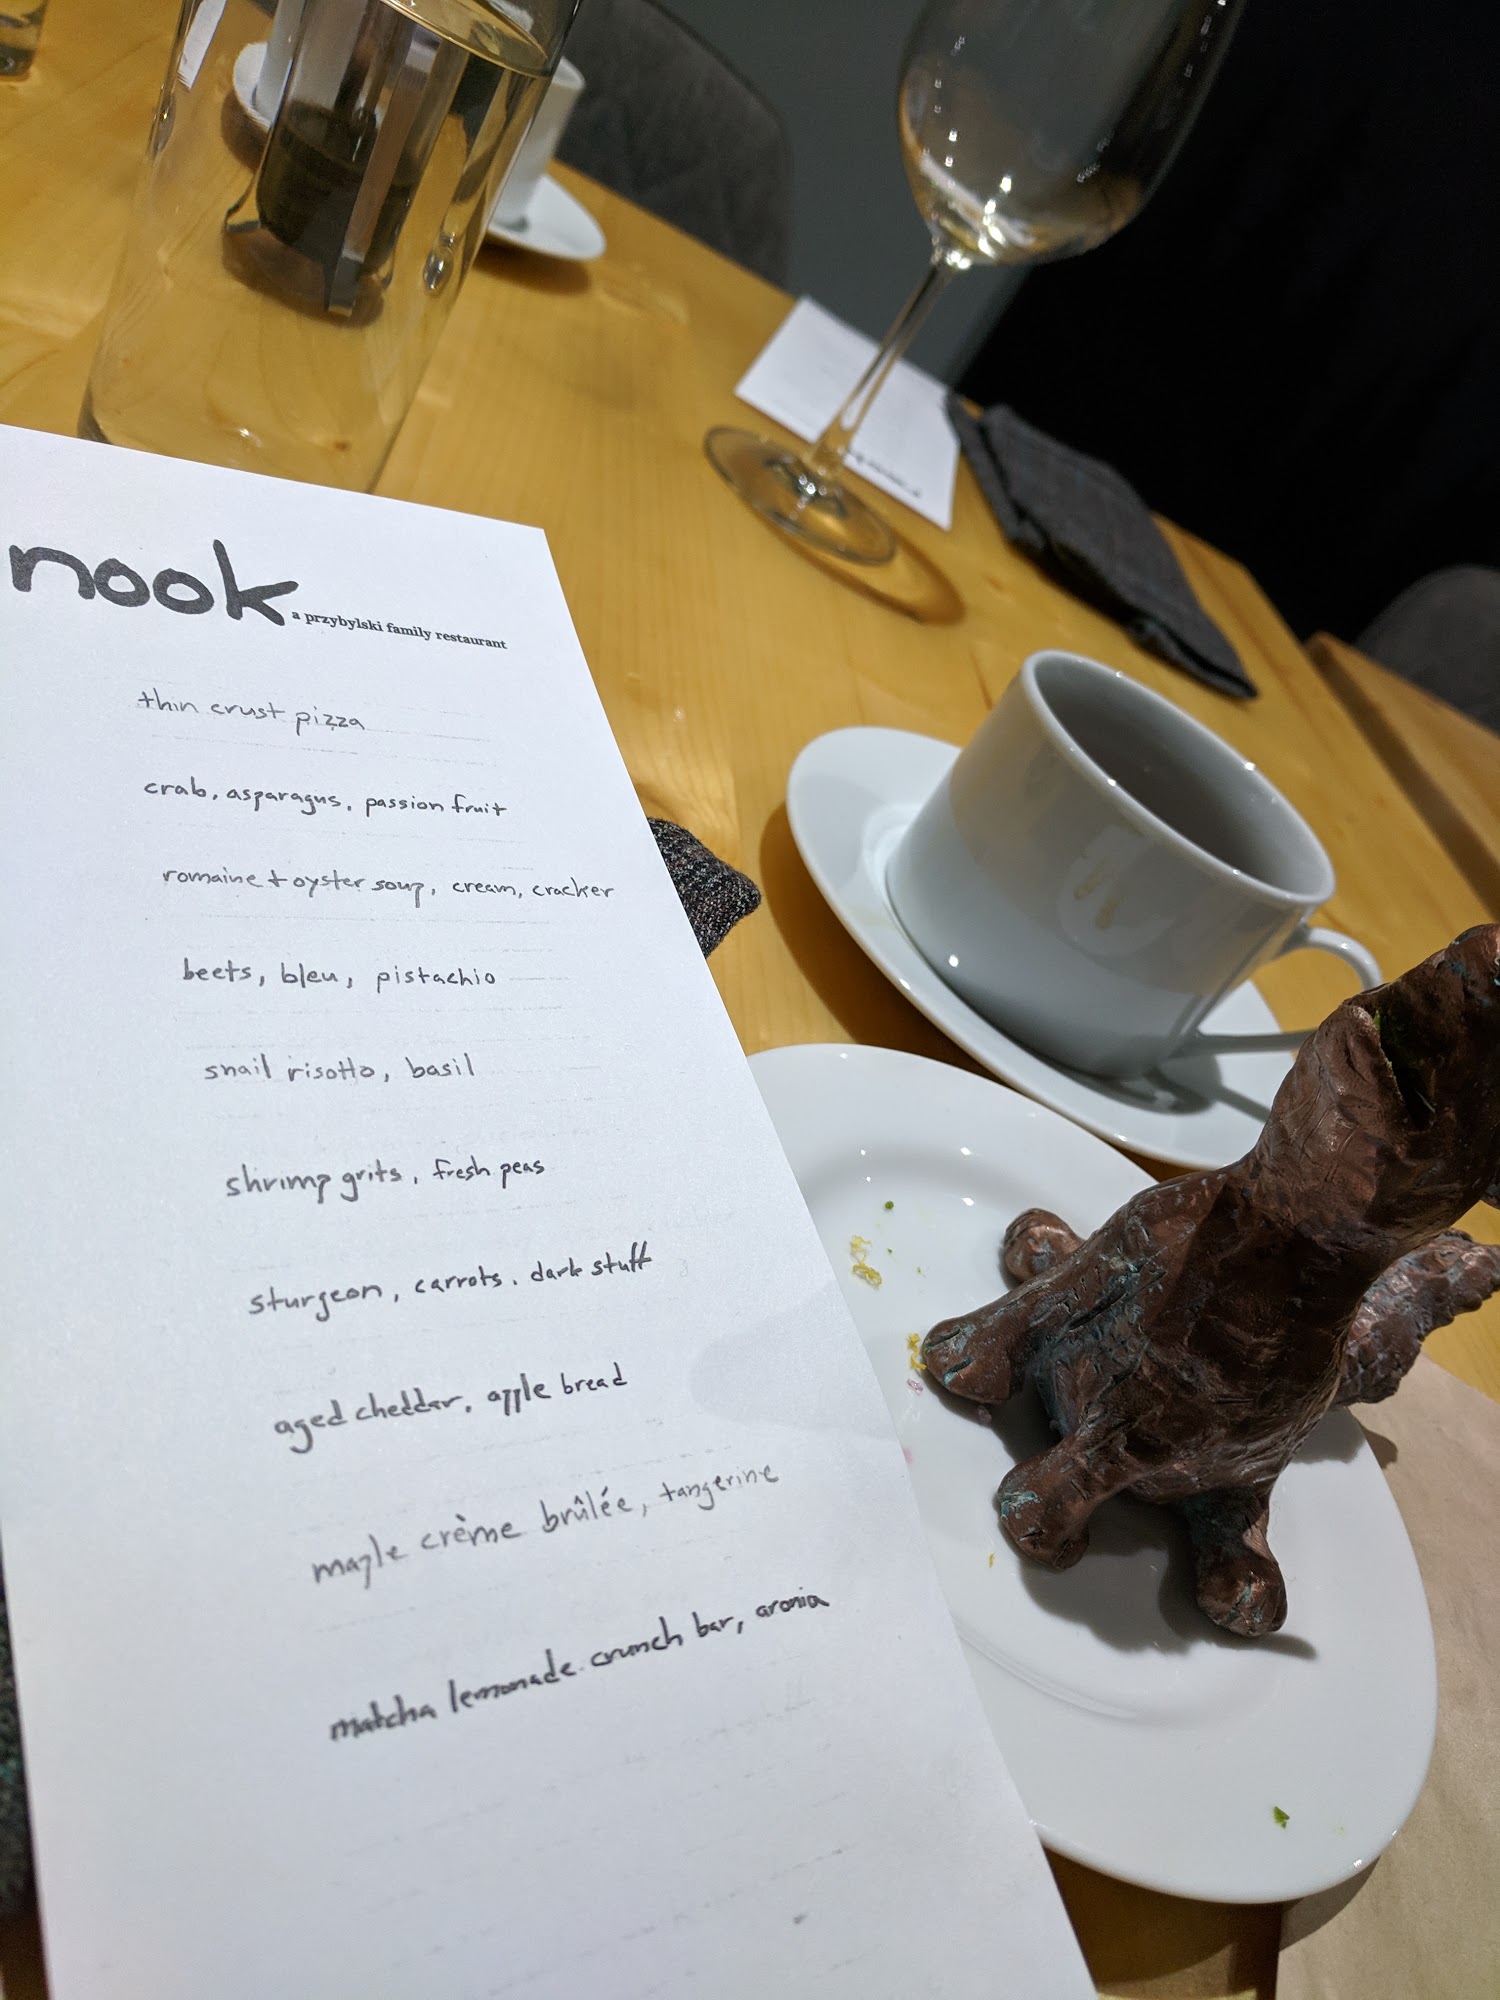 nook
a przybylski family restaurant
thin crust pizza
crab, asparagus, passion fruit
romaine + oyster soup, cream, cracker
beets, bleu, pistachio
snail risotto, basil
shrimp grits, fresh peas
sturgeon, carrots, dark stuff
aged cheddar, apple bread
maple crème brûlée, tangerine
matcha lemonade crunch bar, aronia